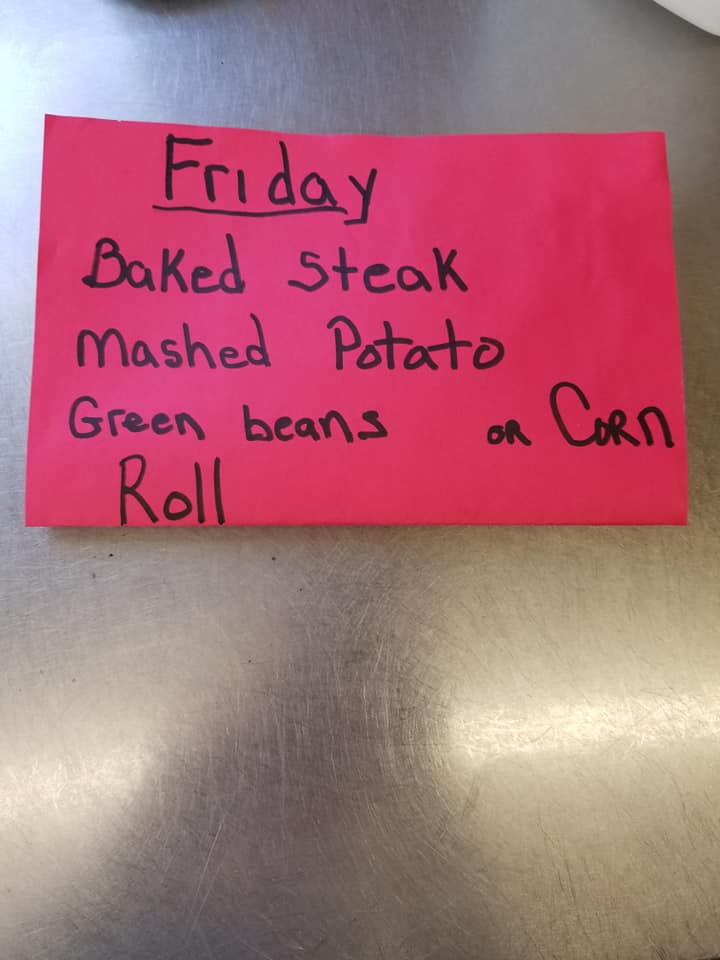 Friday
Baked Steak
Mashed Potato
Green beans or Corn
Roll